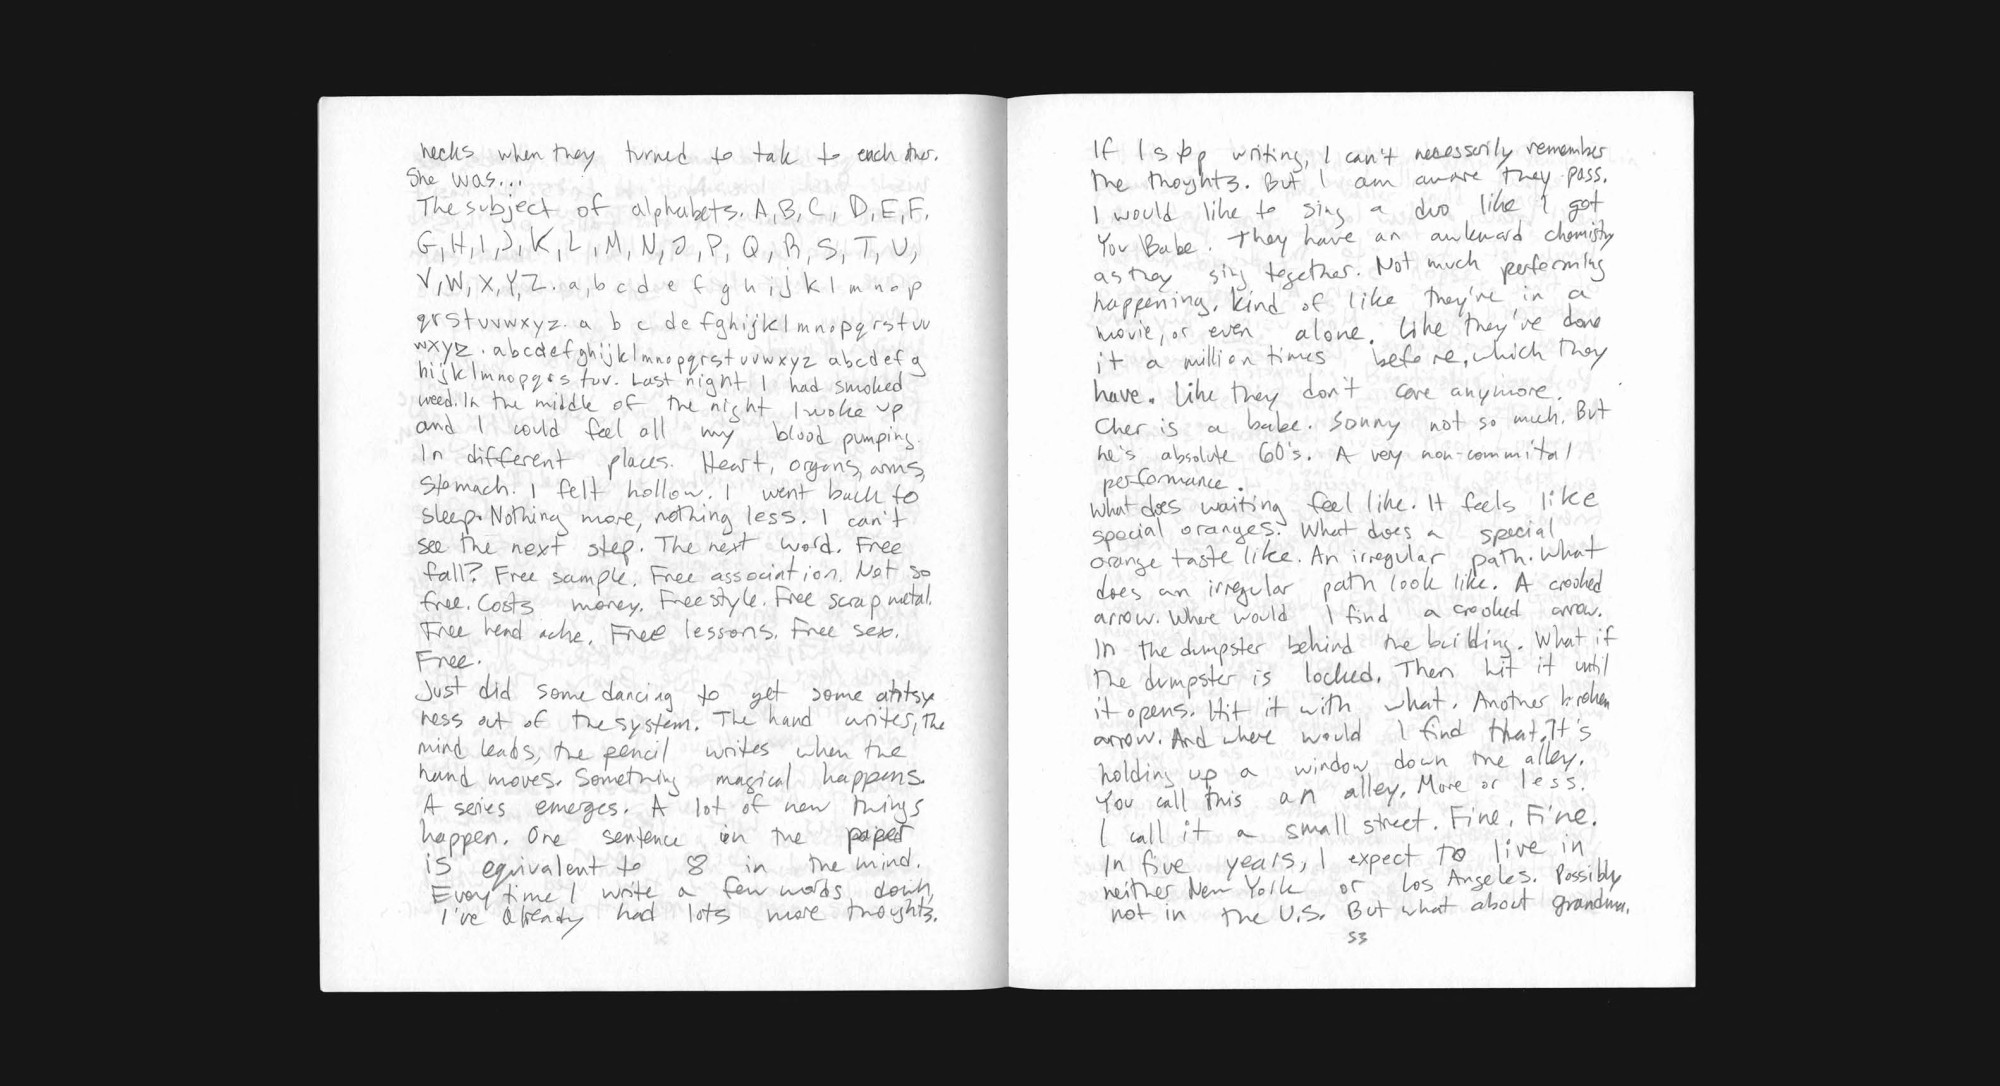 necks when they turned to talk to each other.
She was...
The subject of alphabets. A, B, C, D, E, F,
G, H, I, J, K, L, M, N, O, P, Q, R, S, T, U,
V, W, X, Y, Z. a, b c d e f g h i j k l m n o p
q r s t u v w x y z. a b c d e f g h i j k l m n o p q r s t u v
w x y z. a b c d e f g h i j k l m n o p q r s t u v w x y z a b c d e f g
h i j k l m n o p q r s t u v. Last night I had smoked
weed. In the middle of the night I woke up
and I could feel all my blood pumping.
In different places. Heart, organs, arms,
stomach. I felt hollow. I went back to
sleep. Nothing more, nothing less. I can't
see the next step. The next word. Free
fall? Free sample. Free association. Not so
free. Costs money. Freestyle. Free scrap metal.
Free head ache. Free lessons. Free sex.
Free.
Just did some dancing to get some
ness out of the system. The hand writes, the
mind leads, the pencil writes when the
hand moves. Something magical happens.
A series emerges. A lot of new things
happen. One sentence on the paper
is equivalent to 8 in the mind.
Every time I write a few words down,
I've already had lots more thoughts.
If I stop writing, I can't necessarily remember
the thoughts. But I am aware they pass.
I would like to sing a duo like I got
You Babe. They have an awkward chemistry
as they sing together. Not much performing
happening. Kind of like they're in a
movie, or even alone. Like they've done
it a million times before, which they
have. Like they don't care anymore.
Cher is a babe. Sonny not so much. But
he's absolute 60's. A very non-commital
performance.
What does waiting feel like. It feels like
special oranges. What does a special
orange taste like. An irregular path. What
does an irregular path look like. A crooked
arrow. Where would I find a crooked arrow.
In the dumpster behind the building. What if
the dumpster is locked. Then hit it until
it opens. Hit it with what. Another broken
arrow. And where would I find that. It's
holding up a window down the alley.
You call this an alley. More or less.
I call it a small street. Fine, Fine.
In five years, I expect to live in
neither New York or Los Angeles. Possibly
not in the U.S. But what about grandma.
53